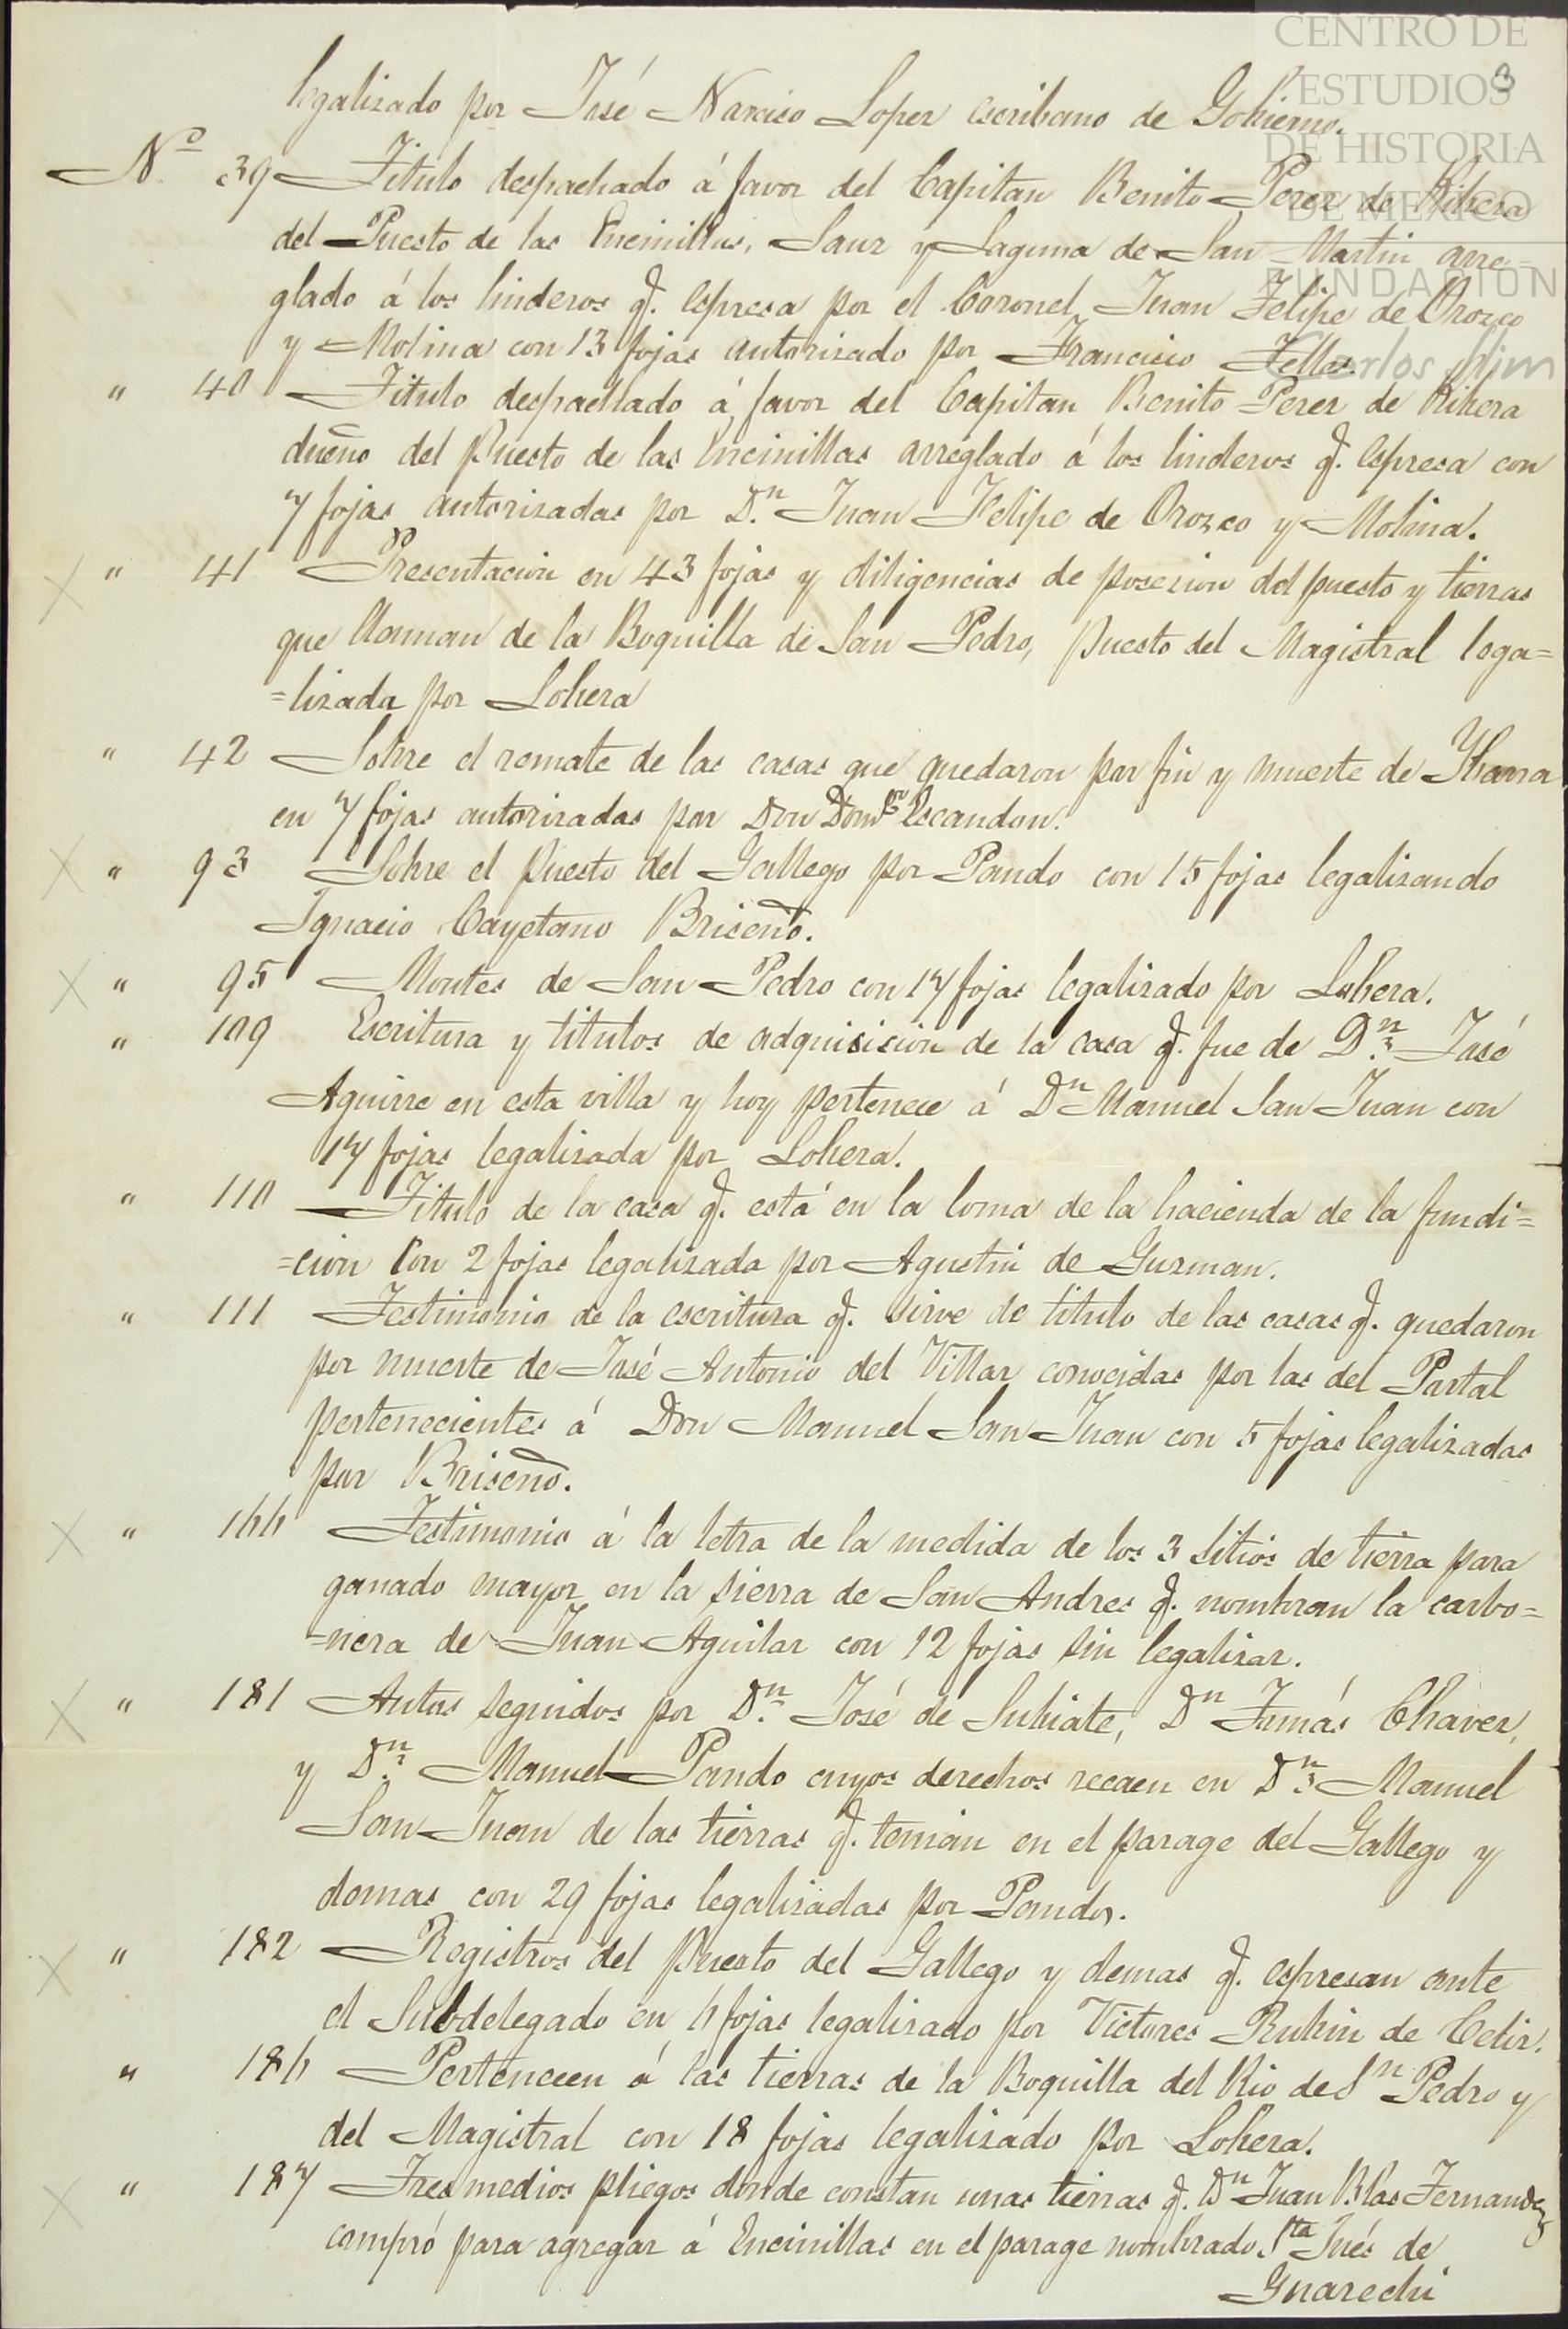 CENTRO DE
ESTUDIOS
DE HISTORIA
DE MEXICO
FUNDACIÓN
Carlos Slim
3
legalizado por José Narciso Lopez escribano de Gobierno.
Nº 39 Titulo despachado á favor del Capitan Benito Perez de Ribera
del Puesto de las Encinillas, Sauz y Laguna de San Martin arre=
glado á los linderos q. espresa por el Coronel Juan Felipe de Orozco
y Molina con 13 fojas autorizado por Francisco Tellez.
" 40 Titulo despachado á favor del Capitan Benito Perez de Ribera
dueño del Puesto de las Encinillas arreglado á los linderos q. espresa con
7 fojas autorizadas por D.n Juan Felipe de Orozco y Molina.
" 41 Presentacion en 43 fojas y diligencias de posesion del puesto y tierras
que llaman de la Boquilla de San Pedro, Puesto del Magistral lega=
=lizada por Lobera
" 42 Sobre el remate de las casas que quedaron por fin y muerte de Ybarra
en 7 fojas autorizadas por Don Domgo Escandon.
" 93 Sobre el Puesto del Gallego por Pando con 15 fojas legalizando
Ignacio Cayetano Briseño.
" 95 Montes de San Pedro con 17 fojas legalizado por Lobera.
" 109 Escritura y titulos de adquisision de la casa q. fue de D.n José
Aguirre en esta villa y hoy pertenece á Dn Manuel San Juan con
17 fojas legalizada por Lobera.
" 110 Titulo de la casa q. está en la loma de la hacienda de la fundi=
=cion con 2 fojas legalizada por Agustin de Guzman.
" 111 Testimonio de la escritura q. sirve de titulo de las casas q. quedaron
por muerte de José Antonio del Villar conocidas por las del Portal
pertenecientes á Don Manuel San Juan con 5 fojas legalizadas
por Briseño.
" 166 Testimonio á la letra de la medida de los 3 sitios de tierra para
ganado mayor en la sierra de San Andres q. nombran la carbo=
=nera de Juan Aguilar con 12 fojas sin legalizar.
" 181 Autos seguidos por D.n José de Subiate, Dn Tomás Chavez,
y D.n Manuel Pando cuyos derechos recaen en D.n Manuel
San Juan de las tierras q. tenian en el parage del Gallego y
demas con 29 fojas legalizadas por Pando.
" 182 Registros del Puesto del Gallego y demas q. espresan ante
el Subdelegado en 6 fojas legalizado por Victores Rubin de Celiz.
" 186 Pertenecen á las tierras de la Boquilla del Rio de Sn Pedro y
del Magistral con 18 fojas legalizado por Lobera.
" 187 Tres medios pliegos donde constan unas tierras q. Dn Juan Blas Fernandez
compró para agregar á Encinillas en el parage nombrado Sta Inés de
Guarechi